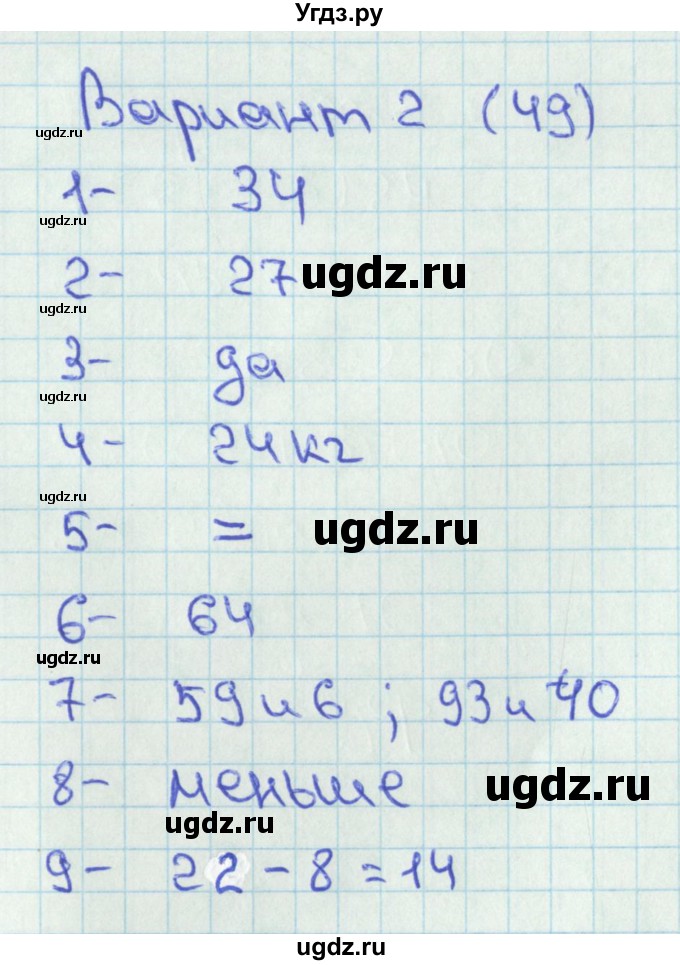 Угдз.ру
Вариант 2 (49)
ugdz.ru
1- 34
ugdz.ru
2- 27 ugdz.ru
ugdz.ru
3- да
ugdz.ru
4- 24 кг
ugdz.ru
5- = ugdz.ru
6- 64
ugdz.ru
7- 59 и 6 ; 93 и 40
8- меньше ugdz.ru
ugdz.ru
9- 22 - 8 = 14
ugdz.ru